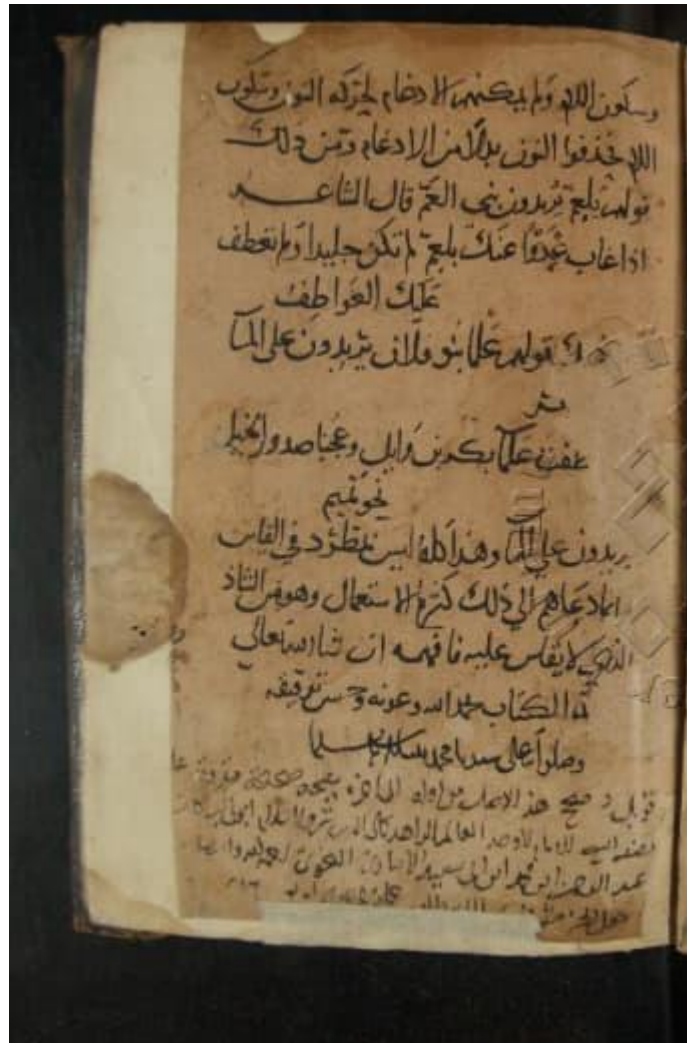 وسكون اللام ولم يمكنهم الادغام لحركة النون وسكون
اللام فحذفوا النون بدلا من الادغام ومن ذلك
قولهم بلعم يريدون بني العم قال الشاعر
اذا غاب غدوا عنك بلعم لم تكن جليدا ولم تعطف
عليك العواطف
قولهم علما بنو فلان يريدون على الما
غفت علما بكر بن وايل وعجنا صدور الخيل
نحو تميم
يريدون على الما وهذا كله ليس بمطرد في القياس
انما دعاهم الى ذلك كثرة الاستعمال وهو من الشاذ
الذي لا يقاس عليه فافهمه ان شا الله تعالى
تم الكتاب بحمد الله وعونه وحسن توفيقه
وصلواته على سيدنا محمد
قوبل وصحح هذا الاصل من اوله الى اخره بنسخة صحيحة مقروة
عبد الرحمن ابن محمد ابن ابي سعيد الانباري النحوي